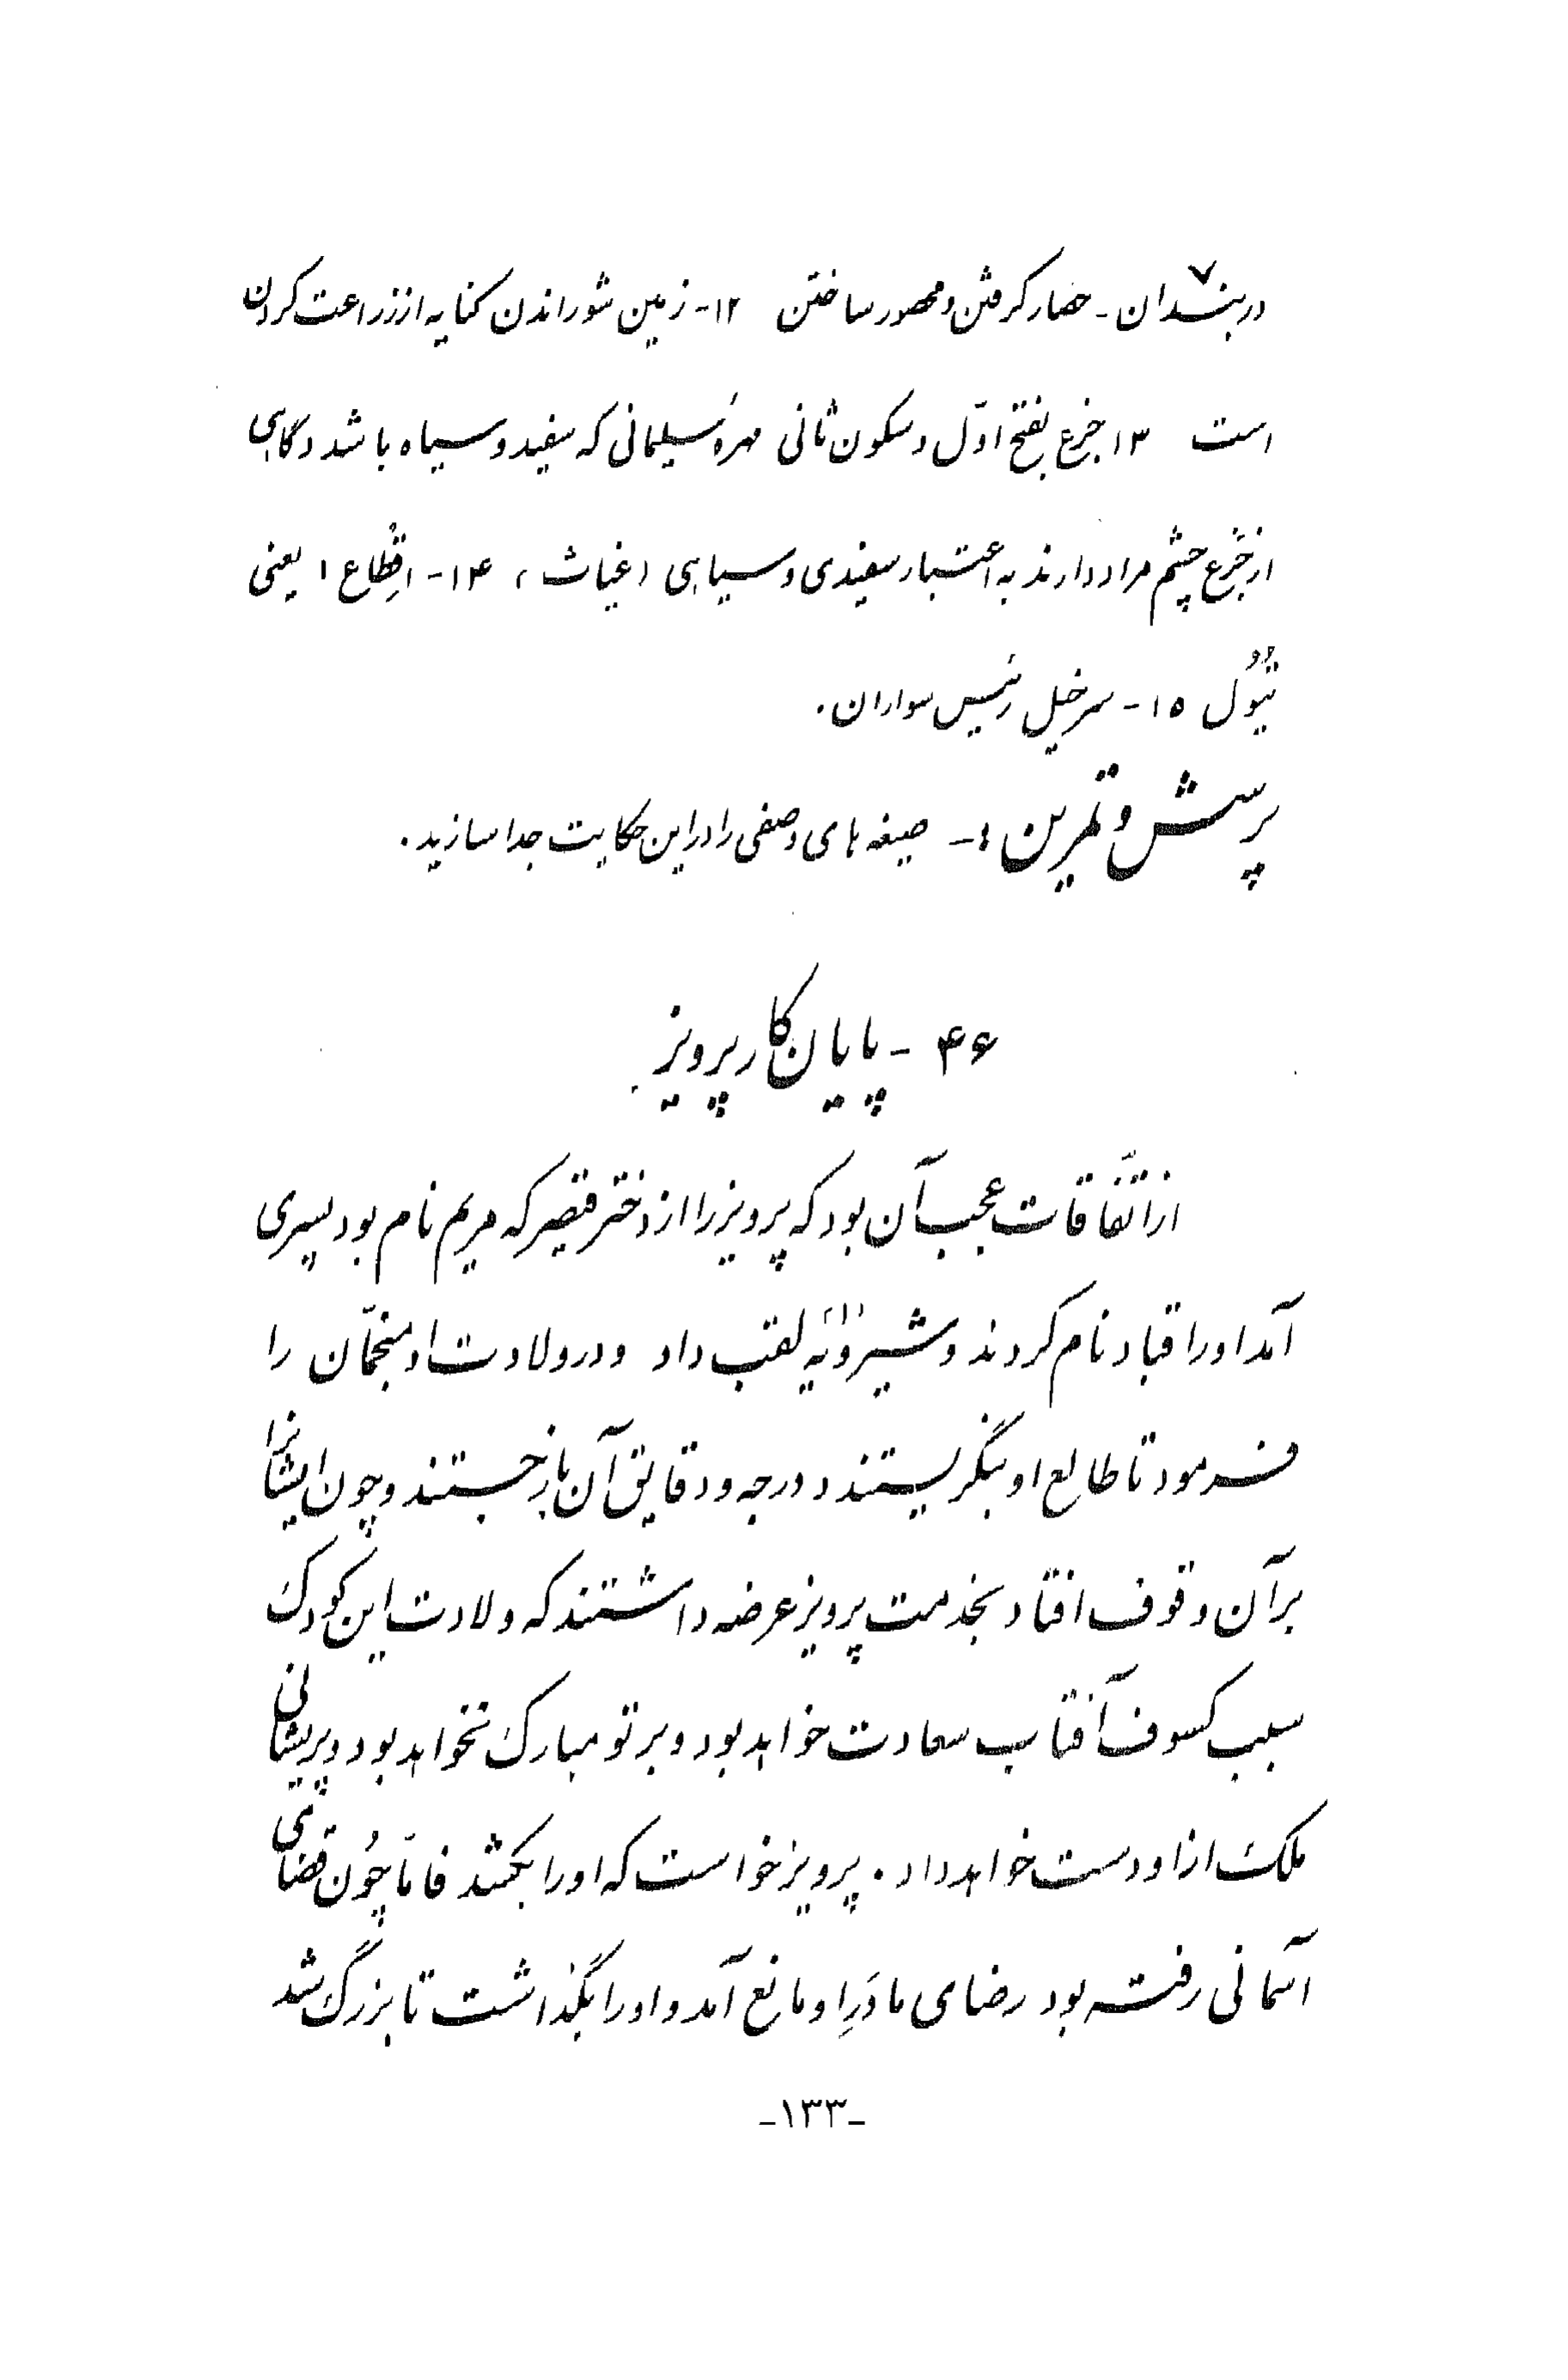 دربندان - حصار گرفتن و محصور ساختن ۱۲- زمین شوراندن کنایه از زراعت کردن
است ۱۳ جزع بفتح اوّل و سکون ثانی مهرهٔ سلیمانی که سفید و سیاه باشد و گاهی
از جَزع چشم مراد دارند به اعتبار سفیدی و سیاهی (غیاث) ۱۴- اقطاع یعنی
تُیُول ۱۵- سرخیل رئیس سواران.
پرسش و تمرین :- صیغه های وصفی را در این حکایت جدا سازید.
۴۶ - پایان کار پرویز
از اتّفاقات عجیب آن بود که پرویز را از دختر قیصر که مریم نام بود پسری
آمد او را قباد نام کردند و شیرویه لقب داد و در ولادت او منجّمان را
فرمود تا طالع او بنگریستند و درجه و دقایق آن باز جستند و چون ایشانرا
بر آن وقوف افتاد بخدمت پرویز عرضه داشتند که ولادت این کودک
سبب کسوف آفتاب سعادت خواهد بود و بر تو مبارک نخواهد بود و پریشانی
ملک از او دست خواهد داد. پرویز خواست که او را بکشد فامّا چُون قضای
آسمانی رفته بود رضای مادَرِ او مانع آمد و او را بگذاشت تا بزرگ شد
-۱۳۳-